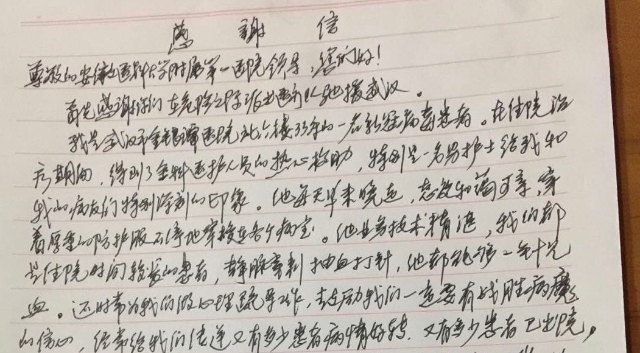 感謝信
尊敬的安徽医科大学附属第一医院领导，您们好！
首先感谢你们在危险之际派出医疗队驰援武汉。
我是武汉市金银潭医院北六楼33床的一名新冠病毒患者。在住院治
疗期间，得到了全科医护人员的热心救助，特别是一名男护士给我和
我的病友们特别深刻的印象。他每天早来晚走，态度和蔼可亲，穿
着厚重的防护服不停地穿梭在各个病室。他业务技术精湛，我们都
是住院时间较长的患者，静脉穿刺抽血打针，他都能够一针见
血。还时常为我们做心理疏导工作，主动我们一定要有战胜病魔
的信心，经常给我们传递又有多少患者病情好转，又有多少患者已出院，